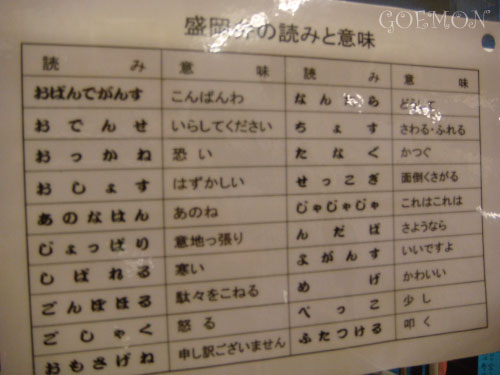 GOEMON
盛岡弁の読みと意味
読み 意味 読み 意味
おばんでがんす こんばんわ
おでんせ いらしてください ちょす さわる・ふれる
おっかね 恐い たなぐ かつぐ
おしょす はずかしい せっこぎ 面倒くさがる
あのなはん あのね じゃじゃじゃ これはこれは
じょっぱり 意地っ張り んだば さようなら
しばれる 寒い よがんす いいですよ
ごんぼほる 駄々をこねる めげ かわいい
ごしゃく 怒る べっこ 少し
おもさげね 申し訳ございません ふたつける 叩く